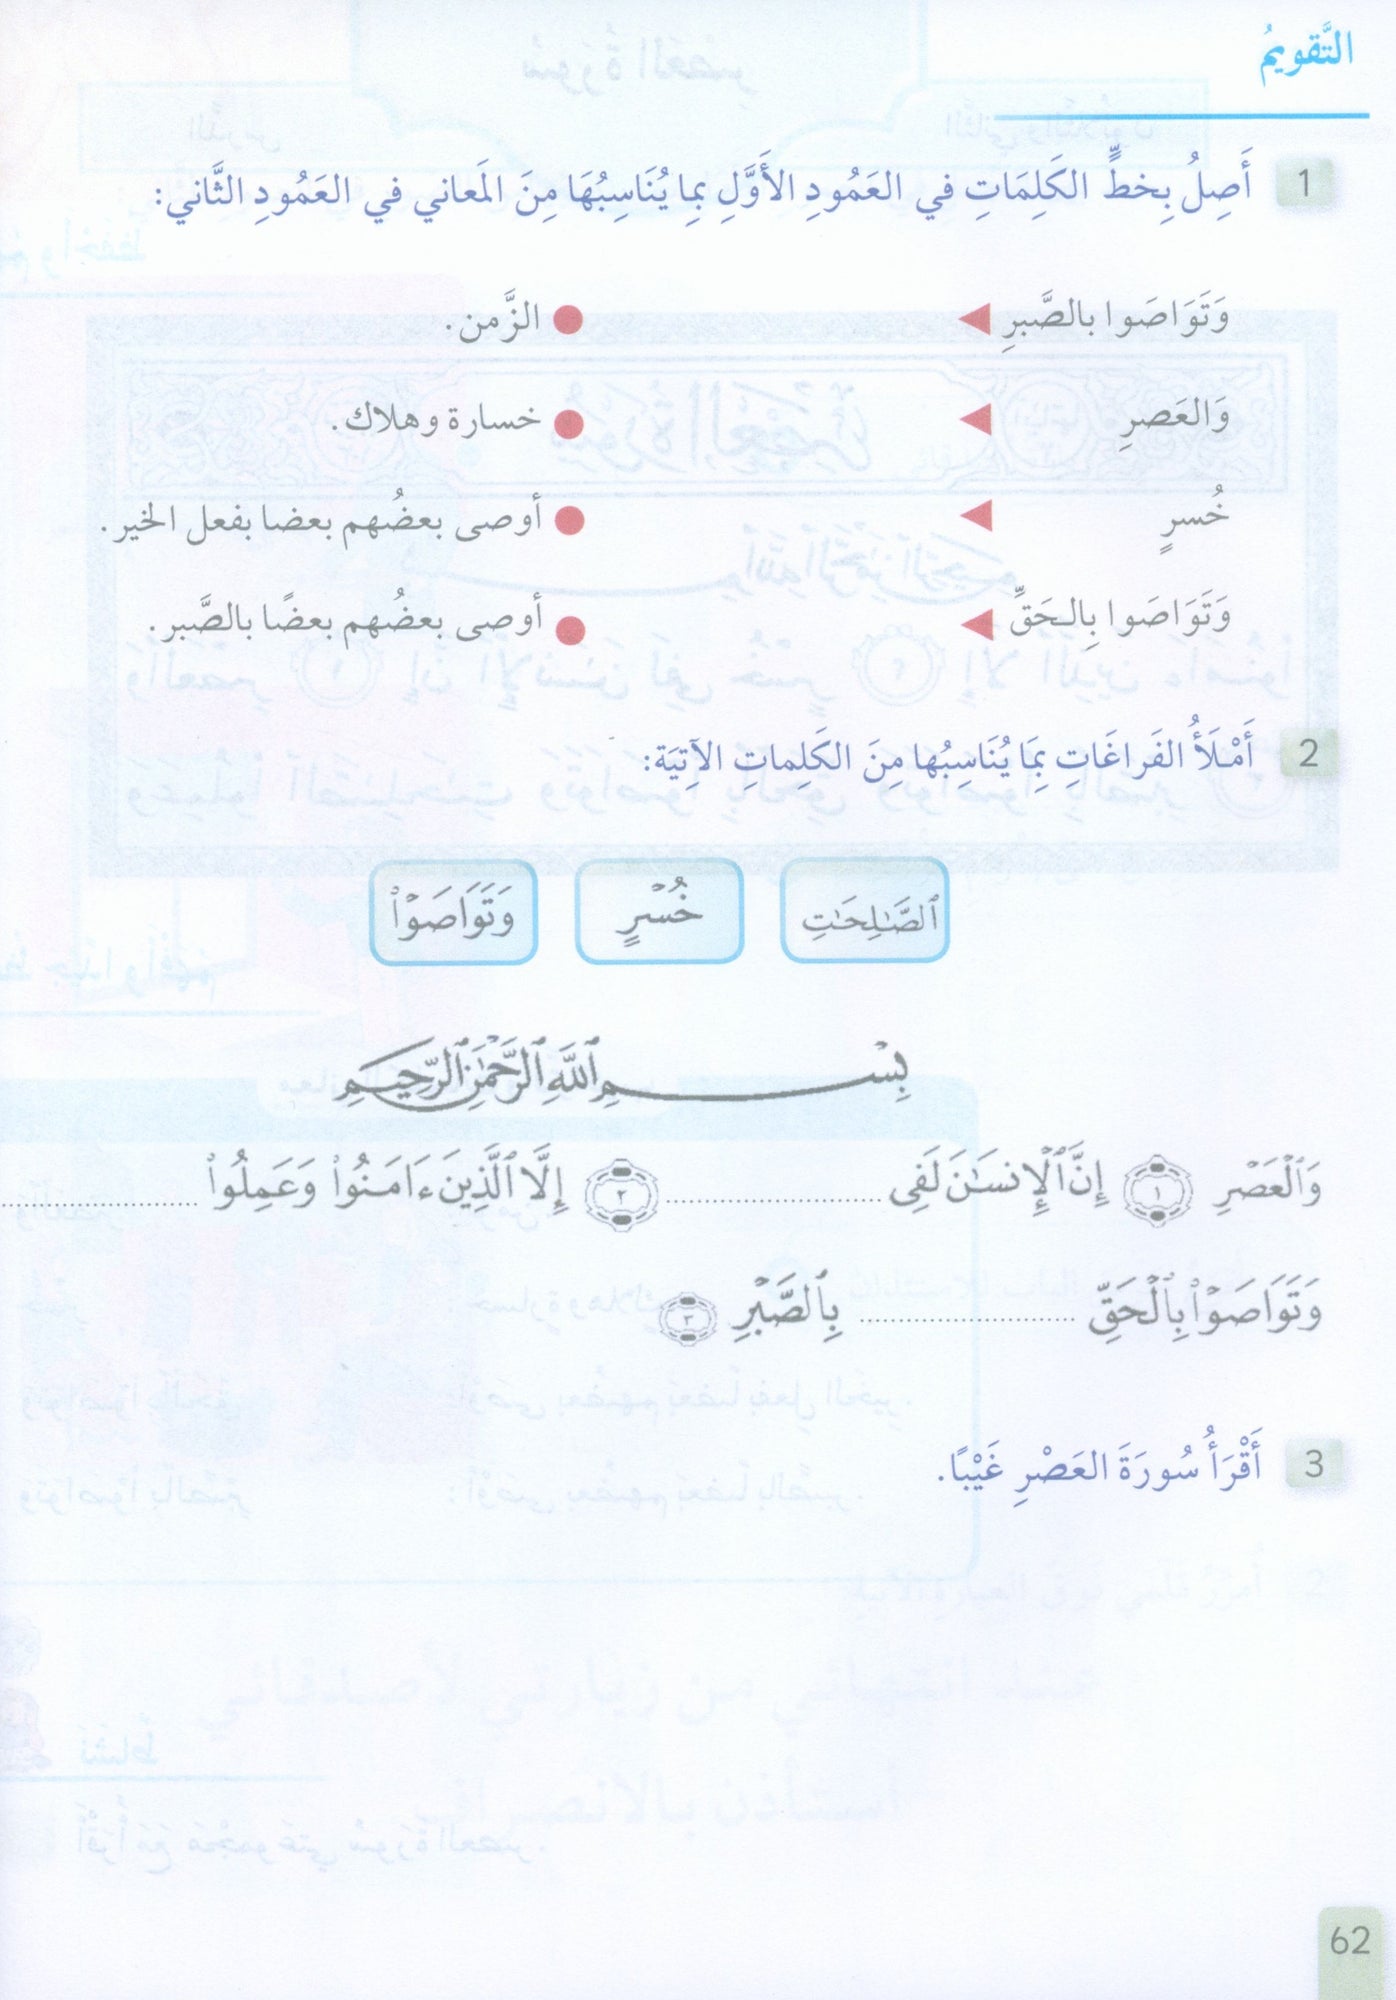 التَّقويمُ
1 أَصِلُ بِخطٍّ الكَلِمَاتِ في العَمُودِ الأَوَّلِ بِما يُنَاسِبُهَا مِنَ المَعاني في العَمُودِ الثَّاني:
وَتَوَاصَوا بالصَّبرِ ◀ ● الزَّمن.
وَالعَصرِ ◀ ● خسارة وهلاك.
خُسرٍ ◀ ● أوصى بعضُهم بعضا بفعل الخير.
وَتَوَاصَوا بِالحَقِّ ◀ ● أوصى بعضُهم بعضًا بالصَّبر.
2 أَمْلَأُ الفَراغَاتِ بِمَا يُنَاسِبُها مِنَ الكَلِماتِ الآتِيَة:
ٱلصَّـٰلِحَـٰتِ خُسۡرٍ وَتَوَاصَوۡا۟
بِسۡمِ ٱللَّهِ ٱلرَّحۡمَـٰنِ ٱلرَّحِيمِ
وَٱلۡعَصۡرِ ١ إِنَّ ٱلۡإِنسَـٰنَ لَفِى .................... ٢ إِلَّا ٱلَّذِينَ ءَامَنُوا۟ وَعَمِلُوا۟ ....................
وَتَوَاصَوۡا۟ بِٱلۡحَقِّ .................... بِٱلصَّبۡرِ ٣
3 أَقْرَأُ سُورَةَ العَصْرِ غَيْبًا.
62